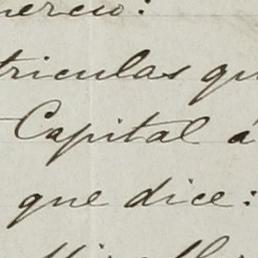 mercio:
triculas qu
Capital á
que dice: